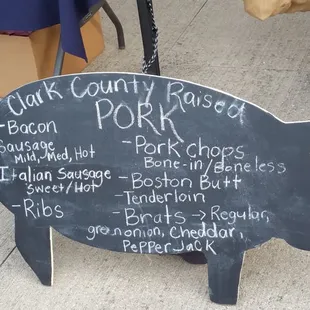 Clark County Raised
PORK
-Bacon
Sausage
Mild, Med, Hot
Italian Sausage
Sweet/Hot
-Ribs
-Pork chops
Bone-in/boneless
-Boston Butt
-Tenderloin
-Brats → Regular,
green onion, Cheddar,
PepperJack